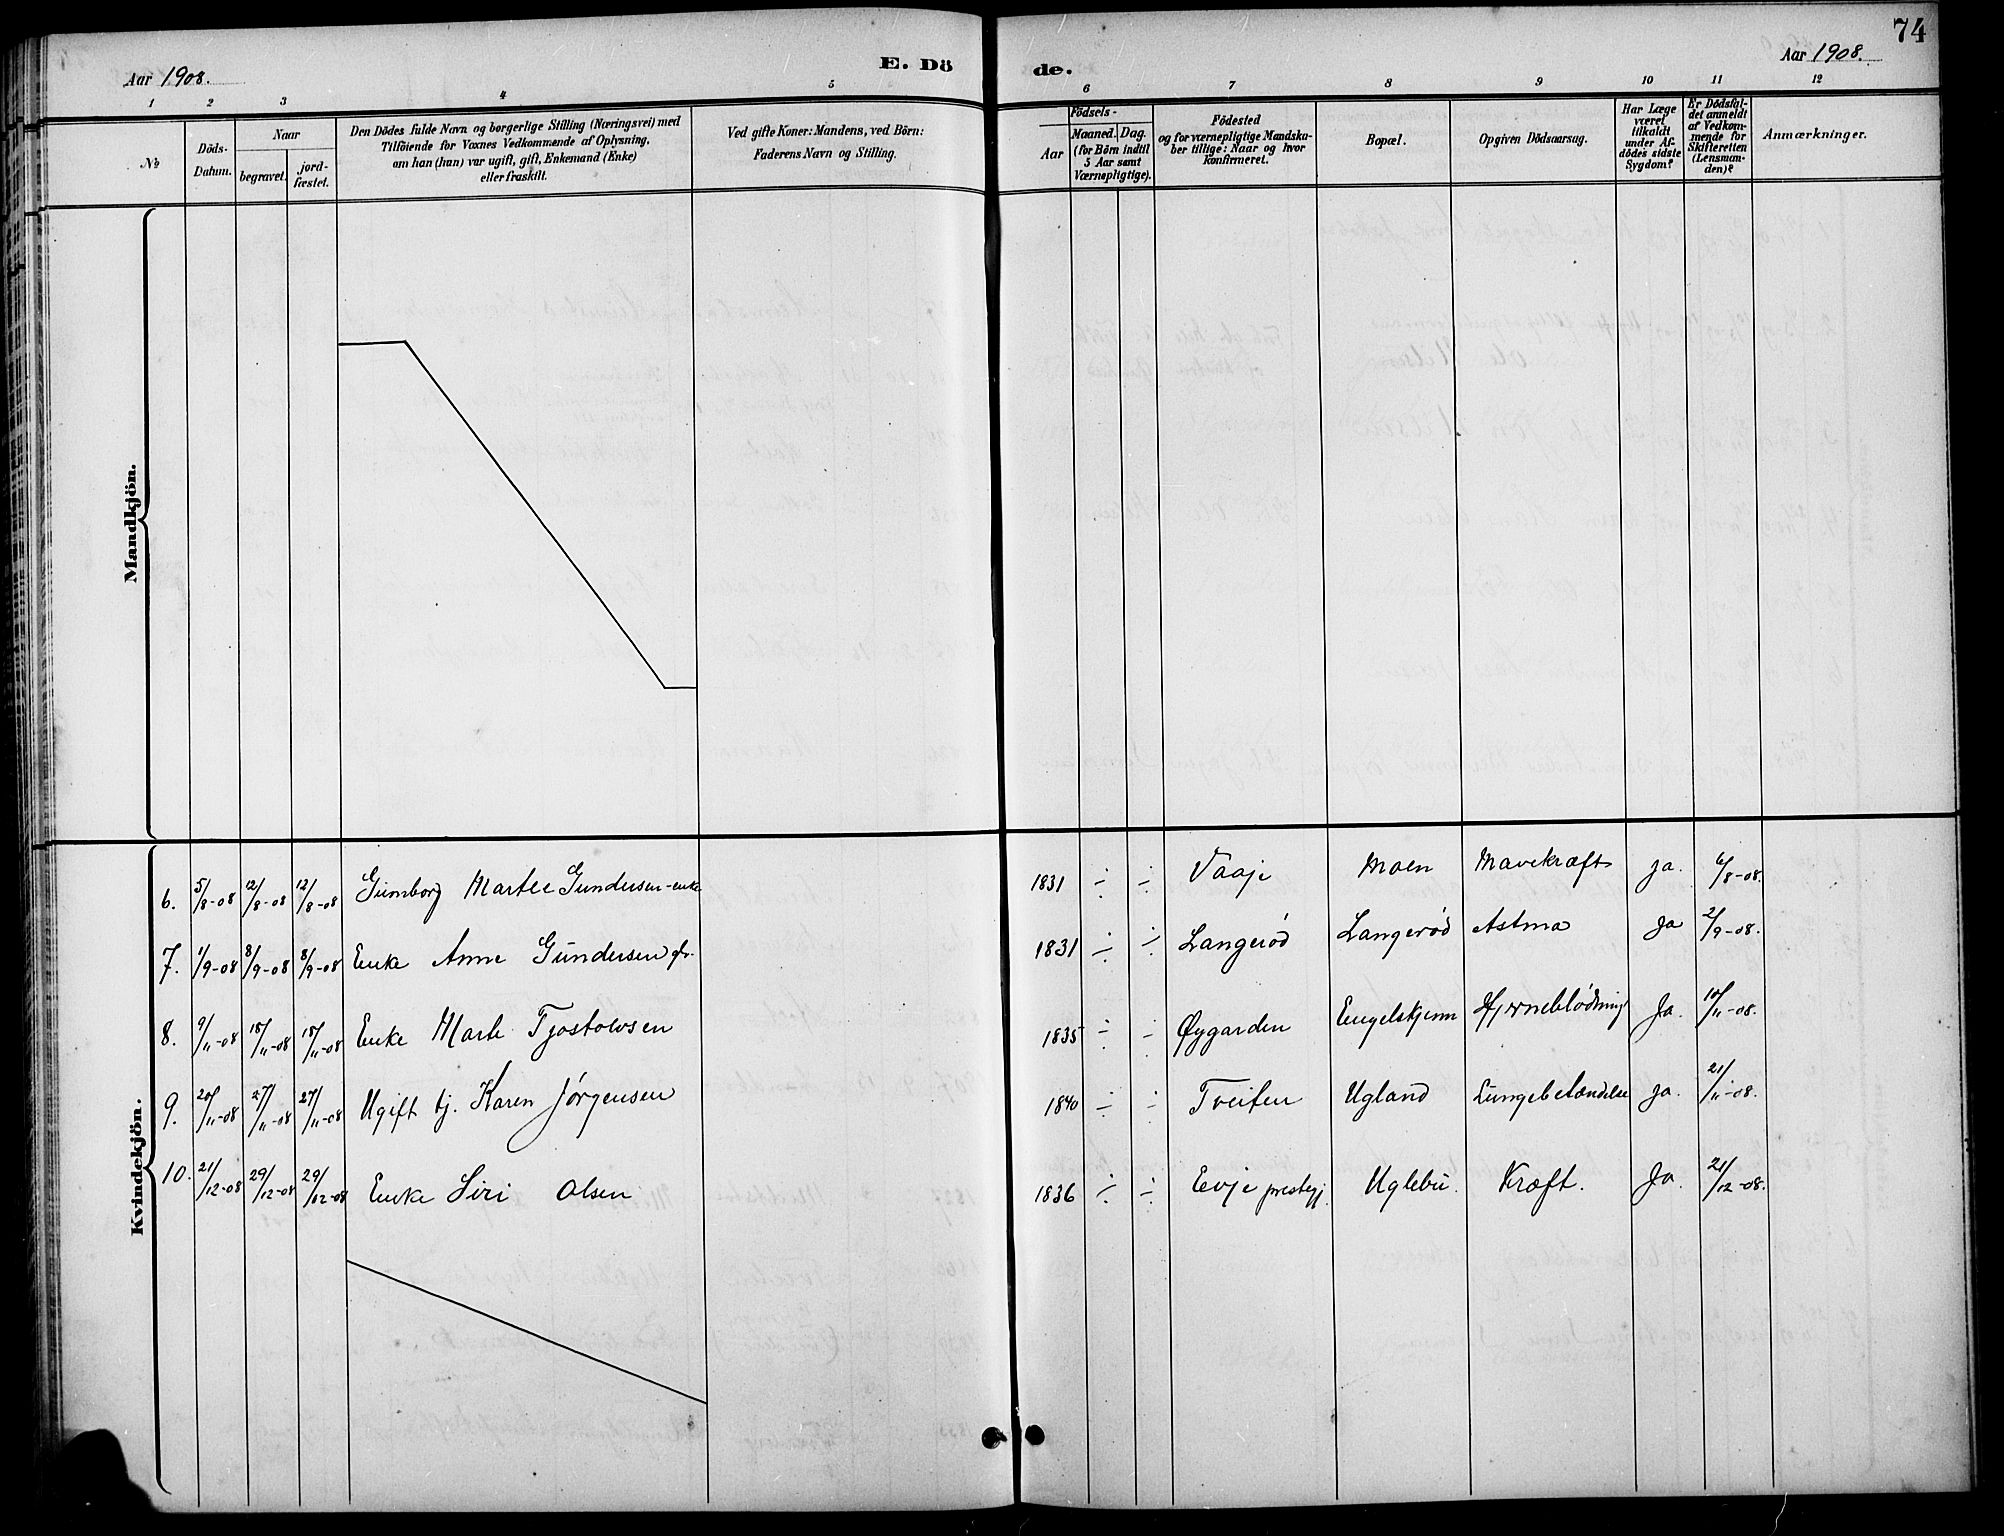 74
Aar 1908.
E. Dö
de.
Aar 1908.
1 2 3 4 5 6 7 8 9 10 11 12
№
Döds-
Datum.
Naar
begravet.
jord-
fæstet.
Den Dödes fulde Navn og borgerlige Stilling (Næringsvei) med
Tilföiende for Voxnes Vedkommende af Oplysning,
om han (hun) var ugift, gift, Enkemand (Enke)
eller fraskilt.
Ved gifte Koner: Mandens, ved Börn:
Faderens Navn og Stilling.
Födsels-
Aar
Maaned. Dag.
(for Börn indtil
5 Aar samt
Værnepligtige).
Födested
og for værnepligtige Mandska-
ber tillige: Naar og hvor
konfirmeret.
Bopæl.
Opgiven Dödsaarsag.
Har Læge
været
tilkaldt
under Af-
dödes sidste
Sygdom?
Er Dödsfal-
det anmeldt
af Vedkom-
mende for
Skifteretten
(Lensman-
den)?
Anmærkninger.
Mandkjön.
Kvindekjön.
6. 5/8-08 12/8-08 12/8-08 Gunborg Martee Gundersen-enke 1831 ÷ ÷ Vaaje Moen Mavekræft ja. 6/8-08.
7. 1/9-08 8/9-08 8/9-08 Enke Anne Gundersen 1831 ÷ ÷ Langerød Langerød Astma Ja 2/9-08.
8. 9/11-08 18/11-08 18/11-08 Enke Marte Tjostolvsen 1835 ÷ ÷ Øygarden Engelskjønn Hjerneblødning Ja. 10/11-08.
9. 20/11-08 27/11-08 27/11-08 Ugift tj. Karen Jørgensen 1840 ÷ ÷ Tveiten Ugland Lungebetændelse ja. 21/11-08.
10. 21/12-08 29/12-08 29/12-08 Enke Siri Olsen 1836 ÷ ÷ Evje prestegj. Uglebu. Kræft. Ja. 21/12-08.